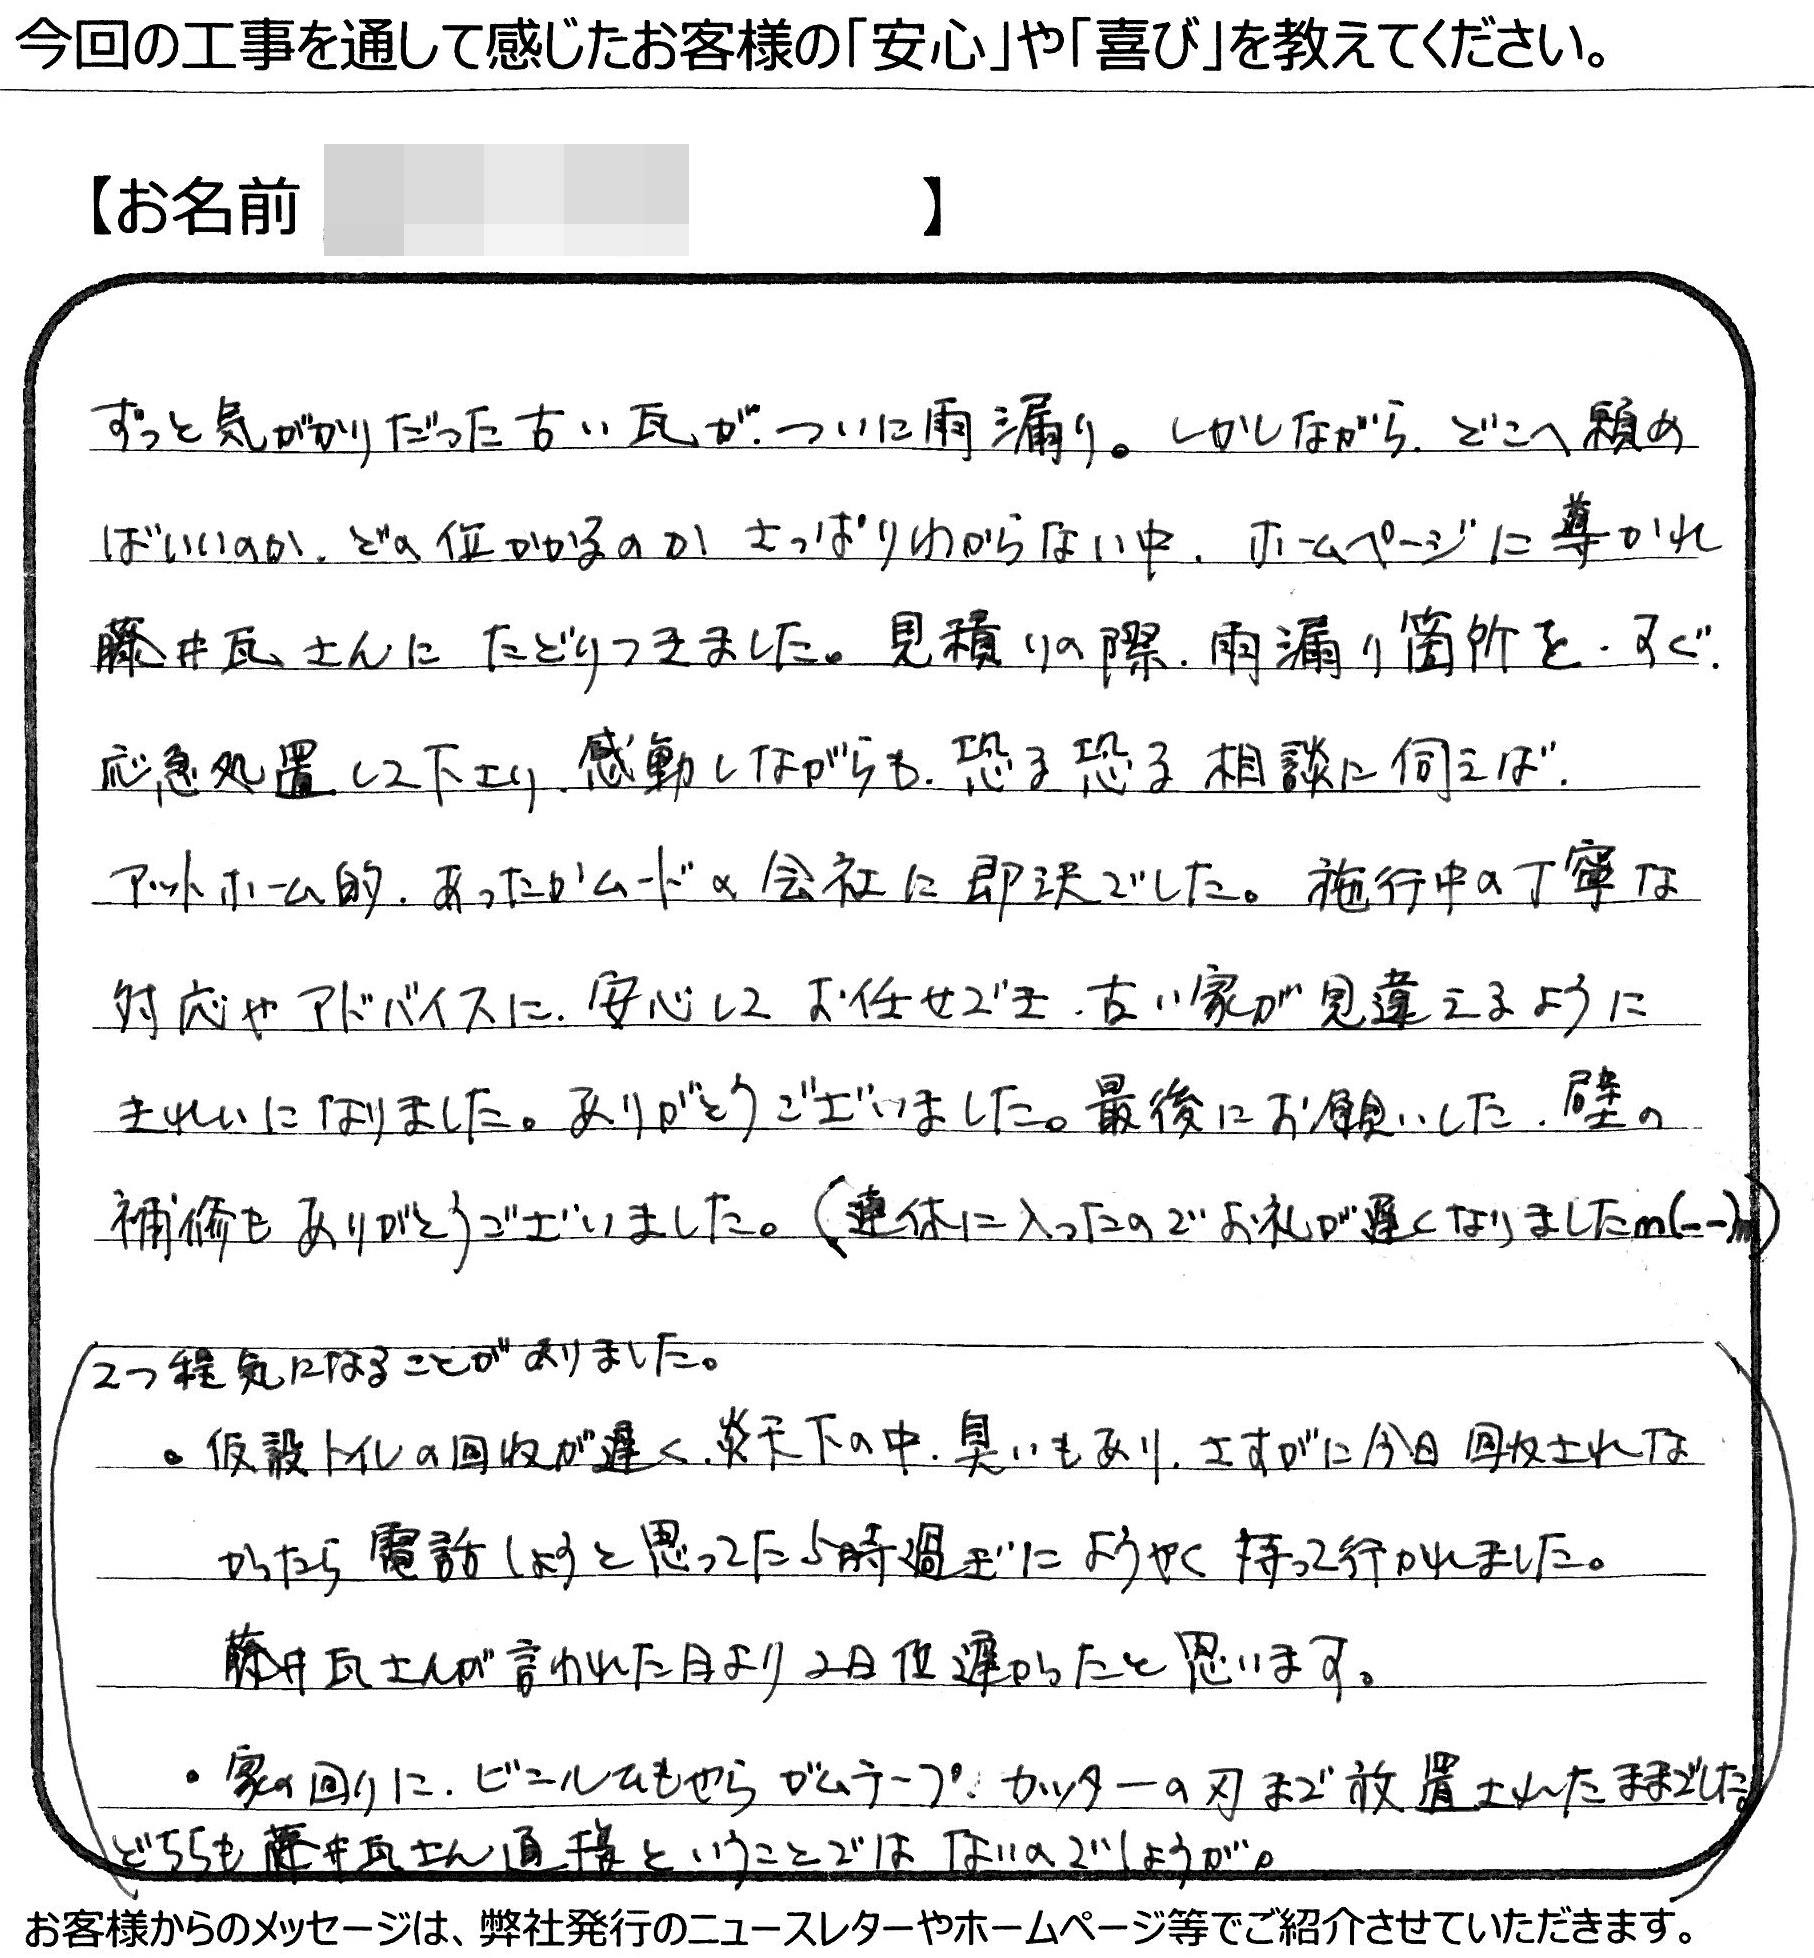 今回の工事を通して感じたお客様の「安心」や「喜び」を教えてください。
【お名前 】
ずっと気がかりだった古い瓦が、ついに雨漏り。しかしながら、どこへ頼め
ばいいのか、どの位かかるのか さっぱりわからない中、ホームページに導かれ
藤井瓦さんに たどりつきました。見積りの際、雨漏り箇所を、すぐ、
応急処置して下さり、感動しながらも、恐る恐る相談に伺えば、
アットホーム的、あったかムードの会社に即決でした。施行中の丁寧な
対応やアドバイスに、安心して お任せでき、古い家が見違えるように
きれいになりました。ありがとうございました。最後にお願いした、壁の
補修もありがとうございました。(連休に入ったのでお礼が遅くなりましたm(--)m)
2つ程気になることがありました。
・仮設トイレの回収が遅く、炎天下の中、臭いもあり、さすがに今日回収されな
かったら電話しようと思ってた5時過ぎにようやく持って行かれました。
藤井瓦さんが言われた日より2日位遅かったと思います。
・家の回りに、ビニールひもやら ガムテープ、カッターの刃まで放置されたままでした。
どちらも藤井瓦さん直接ということではないのでしょうが。
お客様からのメッセージは、弊社発行のニュースレターやホームページ等でご紹介させていただきます。